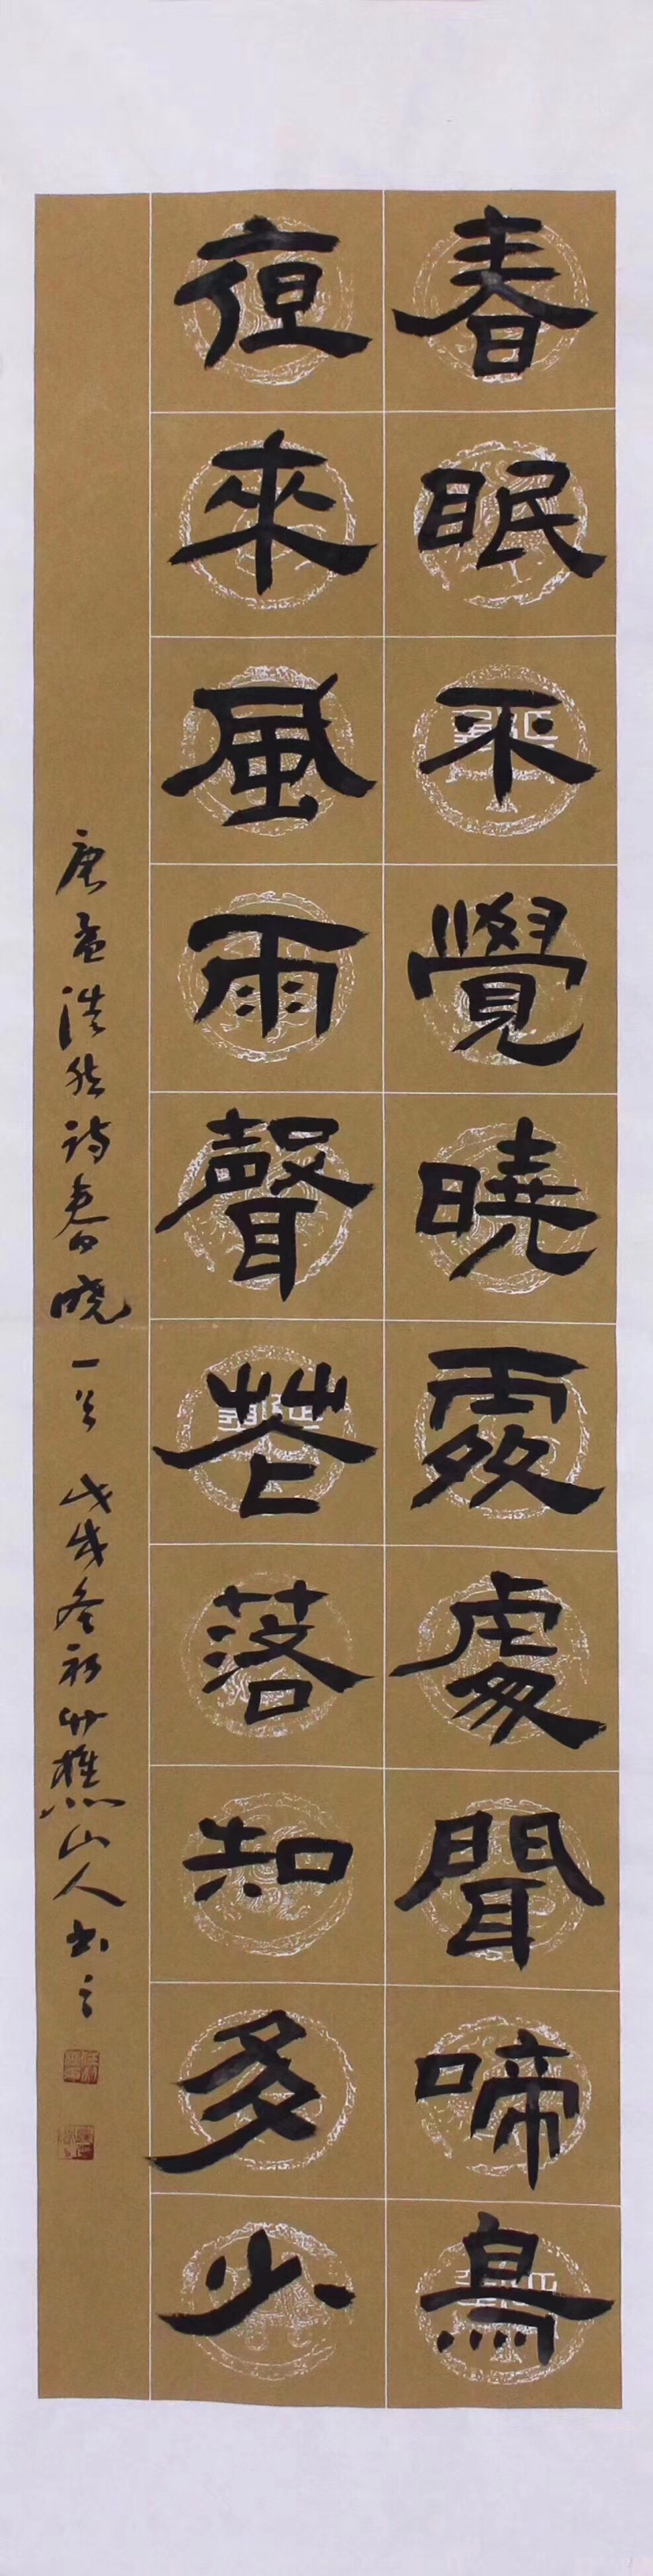 春眠不覺曉處處聞啼鳥
夜來風雨聲花落知多少
唐孟浩然诗春晓一首 戊戌冬初竹樵山人书之